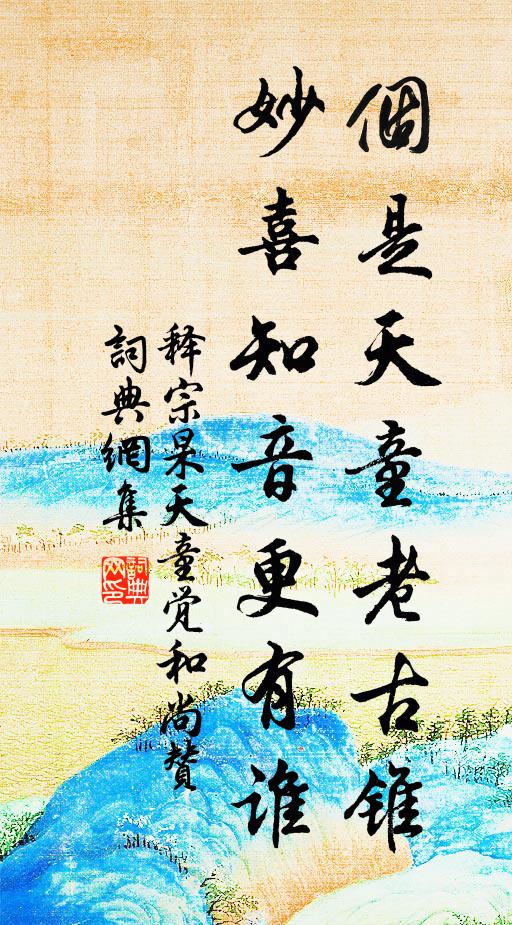 個是天童老古錐
妙喜知音更有誰
释宗杲天童觉和尚贊
詞典網集
詞典网印